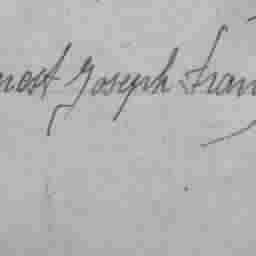 nost Joseph Fran